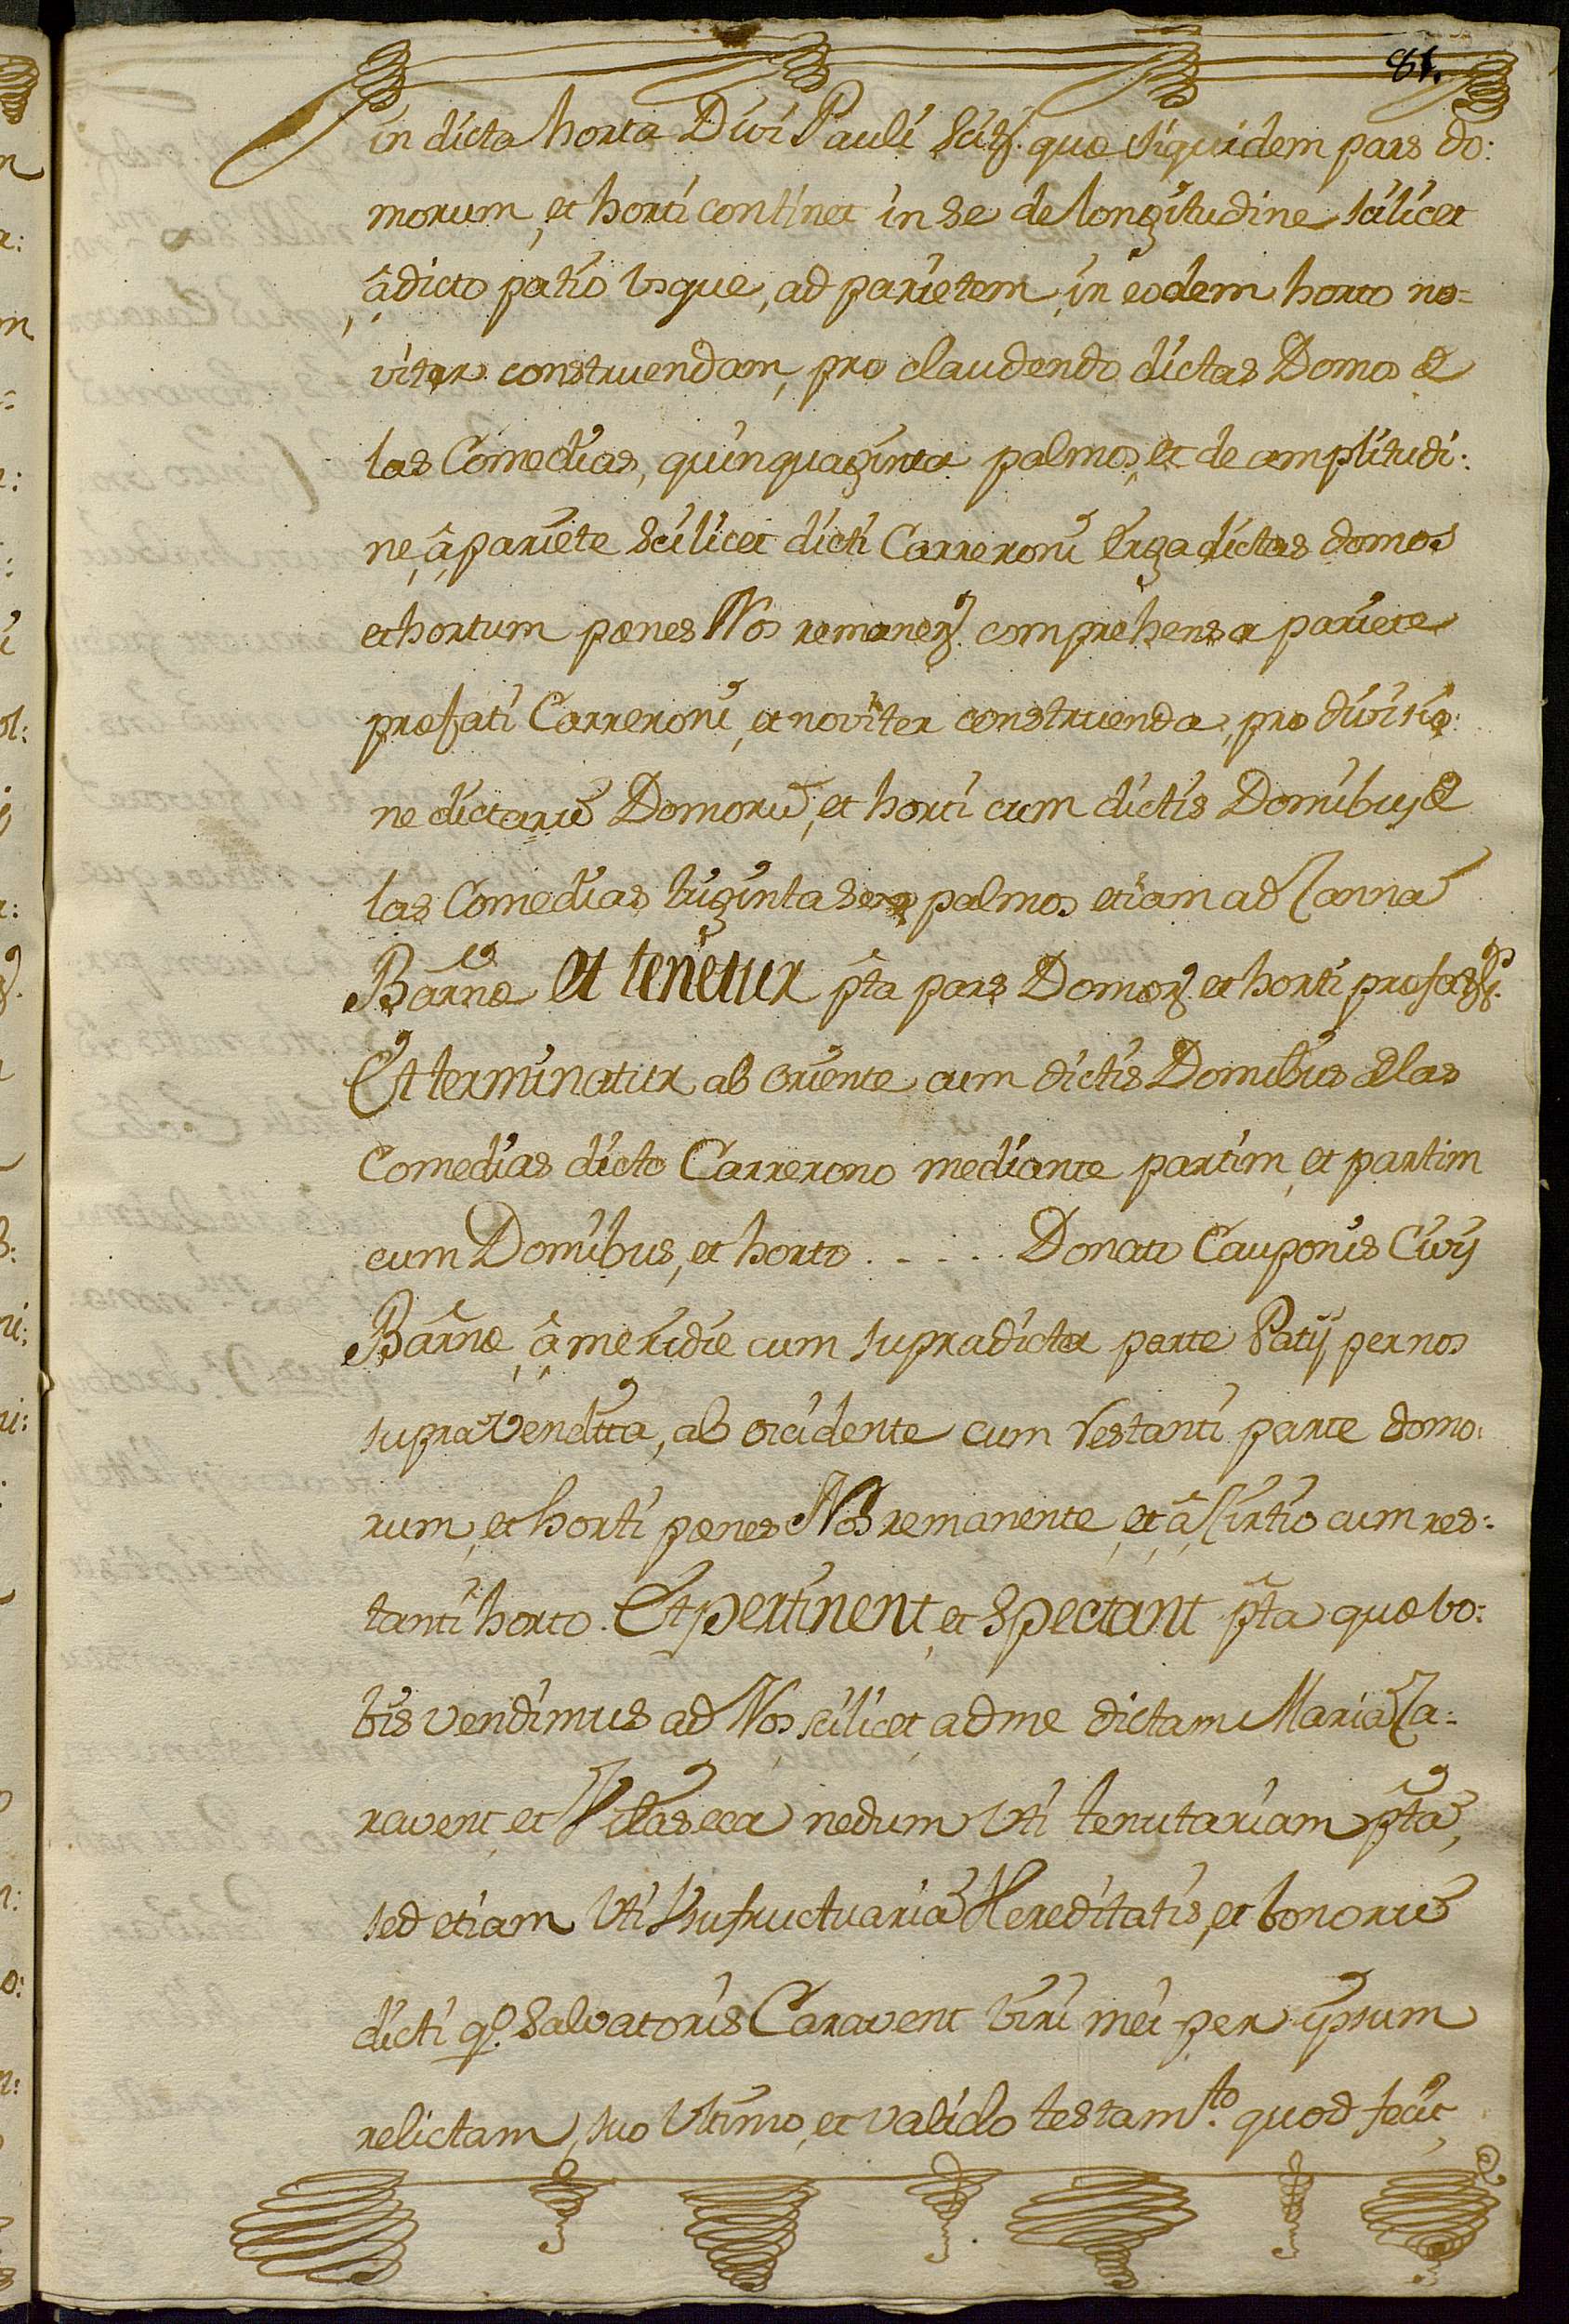 81.
in dicta horta Divi Pauli scitꝫ. quæ siquidem pars do:
morum, et horti continet in se de longitudine scilicet
â dicto patio usque, ad parietem, in eodem horto no=
viter construendam, pro claudendo dictas Domos de
las Comedias, quinquaginta palmos, et de amplitudi:
ne, â pariete scilicet dicti Carreroni Erga dictas domos
et hortum pœnes Nos remanenꝫ. comprehensa pariete
præfati Carreroni, et noviter construenda, pro divisio:
ne dictarũ Domorũ, et horti cum dictis Domibus de
las Comedias triginta sex palmos etiam ad Cannã
Barñæ et tenetur p̃ta pars Domorꝫ. et horti præfat
Et terminatur ab oriente cum dictis Domibus de las
Comedias dicto Carrerono mediante partim, et partim
cum Domibus, et horto . - . - . Donato Cauponis Civis
Barñæ, â meridie cum supradicta parte Patij per nos
supra vendita, ab occidente cum restanti parte domo:
rum, et horti pœnes Nos remanente, et â Cirtio cum res:
tanti horto. Et pertinent, et Spectant p̃ta quæ vo:
bis vendimus ad Nos scilicet ad me dictam Mariã Ca:
ravent, et Vilaseca nedum Uti tenutariam p̃tã,
sed etiam Uti Usufructuariã Hereditatis, et bonorũ
dicti qº. Salvatoris Caravent Viri mei per ipsum
relictam, suo Ultimo, et valido testam.to quod fecit,